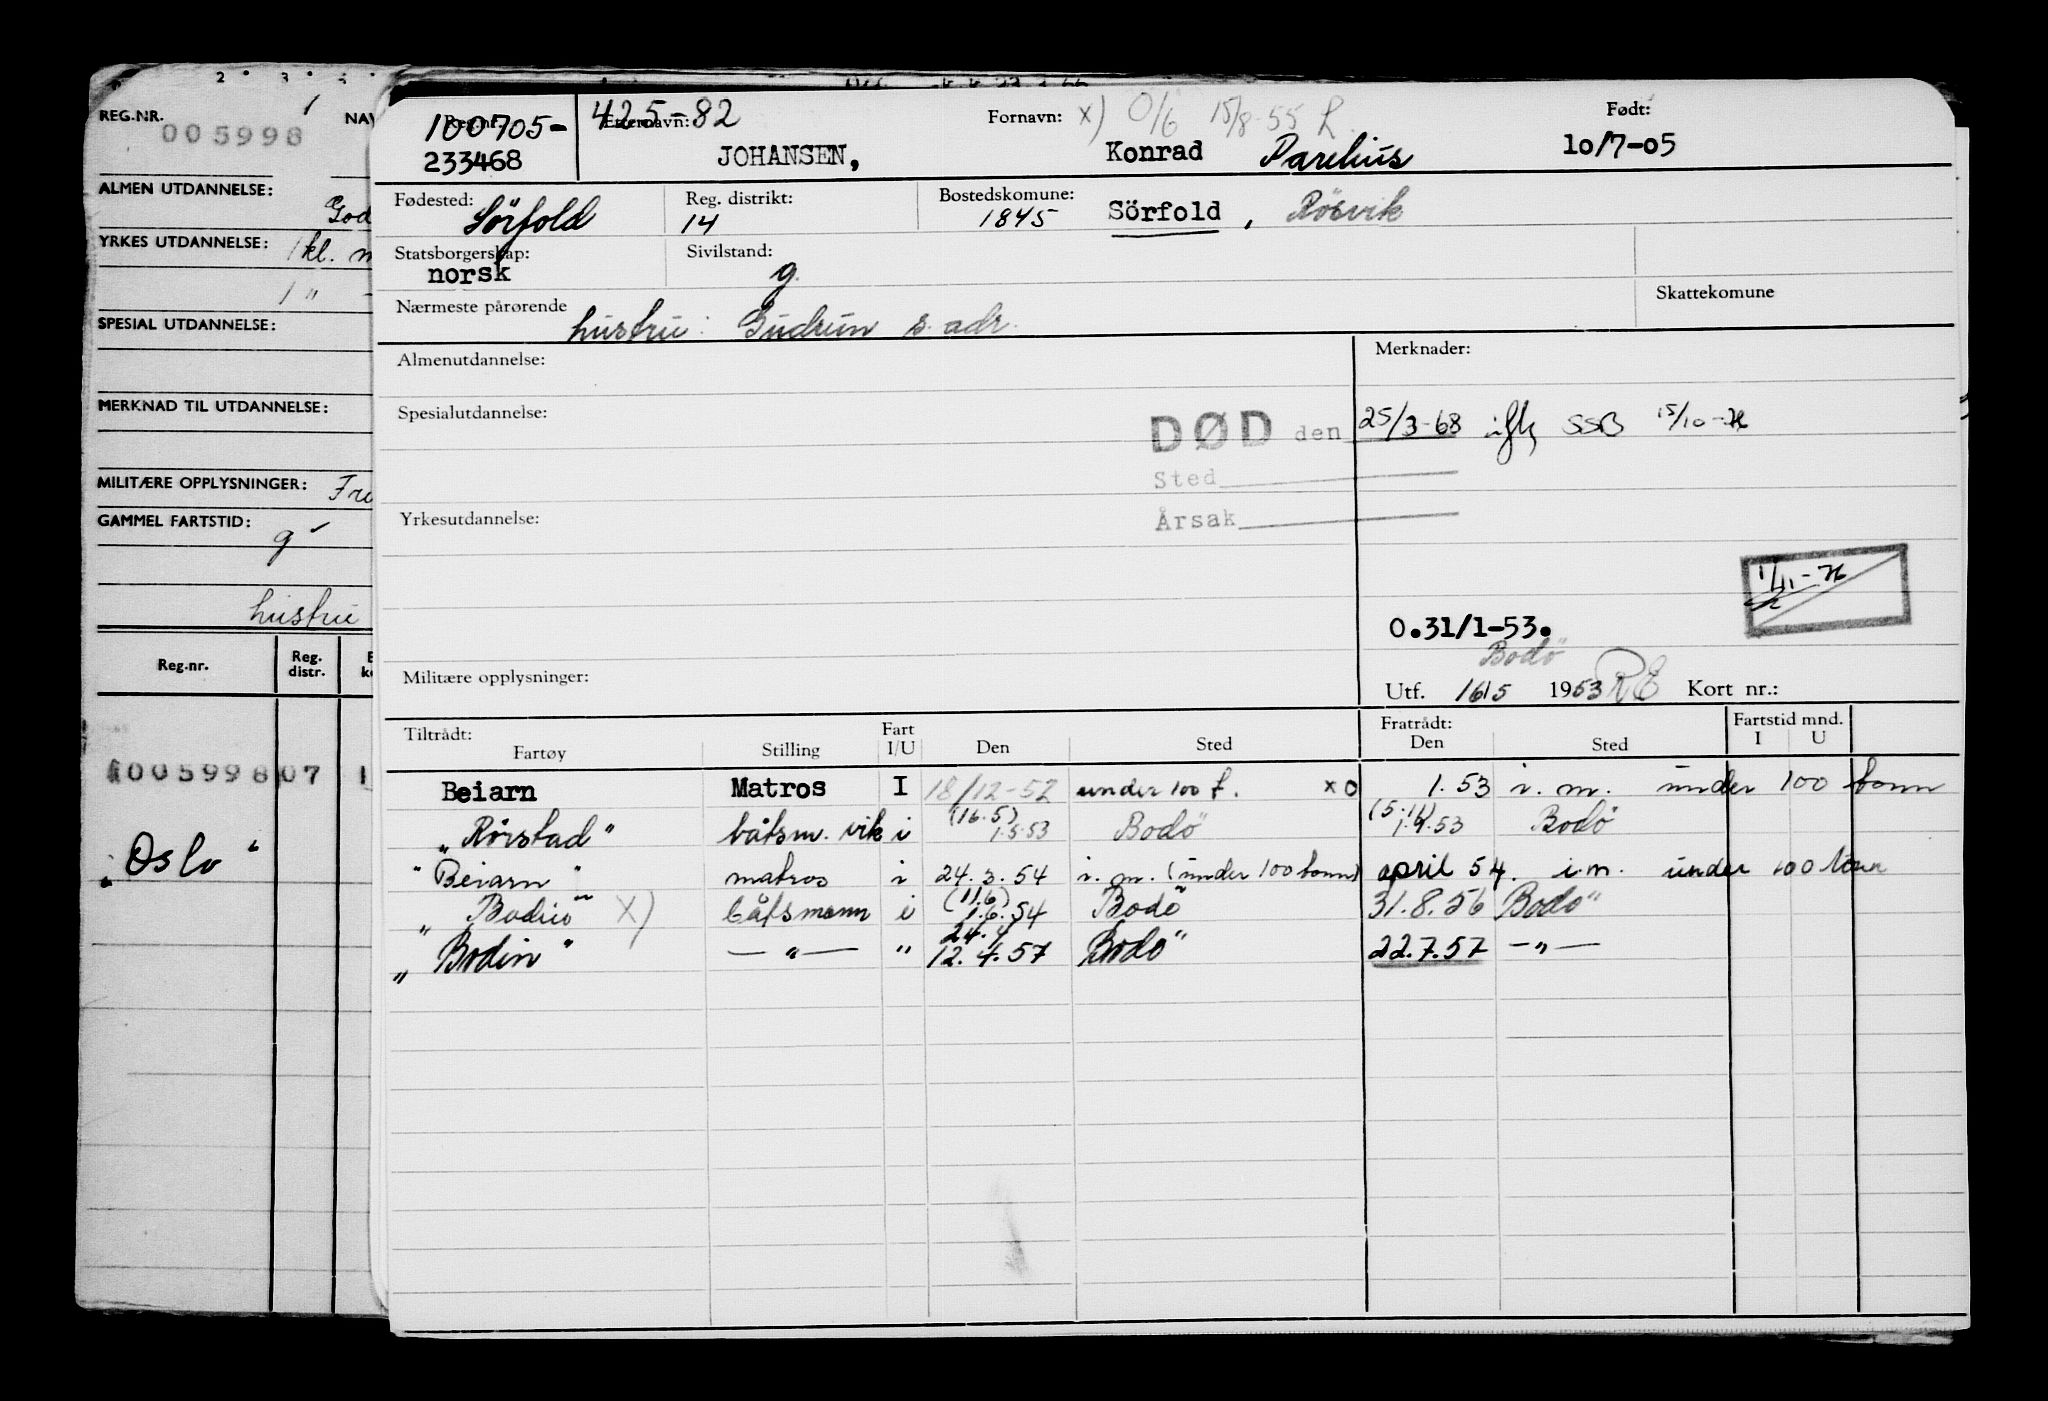 2 3
REG.NR. 1 NAV
005998
ALMEN UTDANNELSE:
God
YRKES UTDANNELSE: 1 kl. m
1 "
SPESIAL UTDANNELSE:
MERKNAD TIL UTDANNELSE:
MILITÆRE OPPLYSNINGER: Fre
GAMMEL FARTSTID:
g
hustru
Reg.nr. Reg. distr.
1005998 07 1
„Oslo"
Reg.nr. Etternavn: Fornavn: Født:
100705- 425-82 x) O/6 15/8-55 L.
233468 JOHANSEN, Konrad Parelius 10/7-05
Fødested: Reg. distrikt: Bostedskomune:
Sörfold 14 1845 Sörfold, Rösvik
Statsborgerskap: Sivilstand:
norsk g.
Nærmeste pårørende Skattekomune
hustru: Gudrun s. adr.
Almenutdannelse: Merknader:
Spesialutdannelse:
DØD den 25/3-68 ifk SSB 15/10-76
Sted
Yrkesutdannelse: Årsak
1/11-76
0.31/1-53.
Bodö
Militære opplysninger: Utf. 16/5 1953 RE Kort nr.:
Tiltrådt: Fart Fratrådt: Fartstid mnd.
Fartøy Stilling I/U Den Sted Den Sted I U
Beiarn Matros I 18/12-52 under 100 t. x0 1.53 i.m. under 100 tonn
„Rörstad" båtsm. vik i (16.5) 1.5.53 Bodö (5.11) 1.9.53 Bodö
"Beiarn" matros i 24.3.54 i.m. (under 100 tonn) april 54. i.m. under 100 tonn
„Bodiö" x) båtsmann i (11.6) 1.6.54 Bodö 31.8.56 Bodö
„Bodin" — " — " 24.4 12.4.57 Bodö 22.7.57 — " —